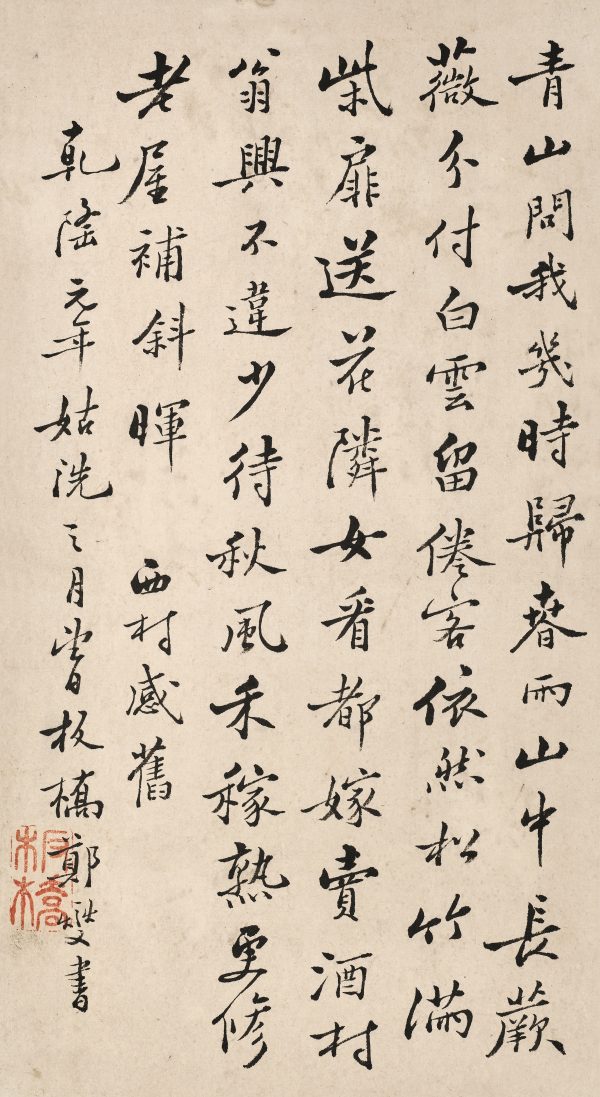 青山問我幾時歸春雨山中長蕨
薇分付白雲留倦客依然松竹滿
柴扉送花隣女看都嫁賣酒村
翁興不違少待秋風禾稼熟更修
老屋補斜暉 西村感舊
乾隆元年姑洗之月板橋鄭燮書
板橋